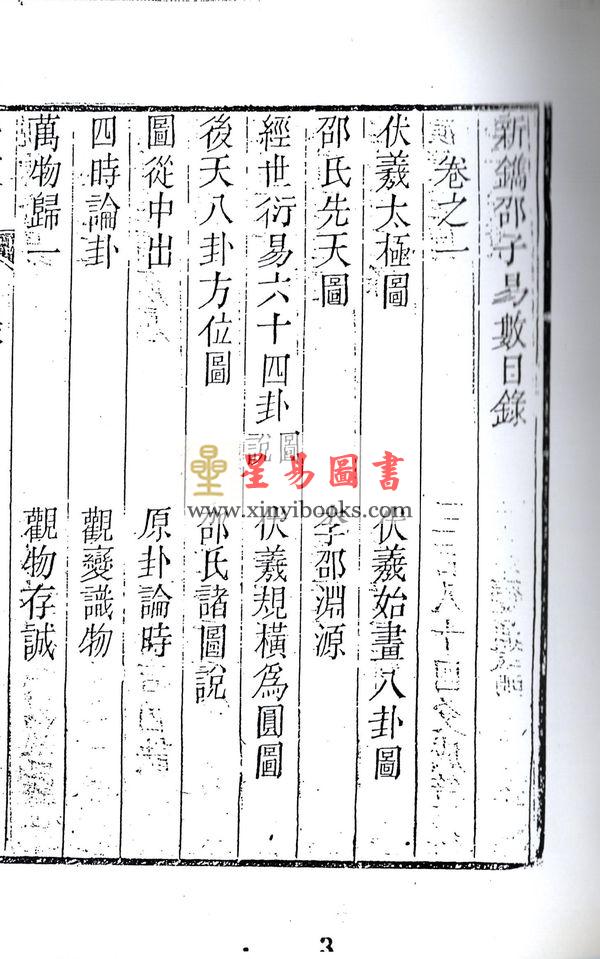 新鐫邵子易數目錄
卷之一
伏羲太極圖
伏羲始畫八卦圖
邵氏先天圖
李邵淵源
經世衍易六十四卦圖說
伏羲規橫為圓圖
後天八卦方位圖
邵氏諸圖說
圖從中出
原卦論時
四時論卦
觀變識物
萬物歸一
觀物存誠
星易圖書
www.xinyibooks.com
3